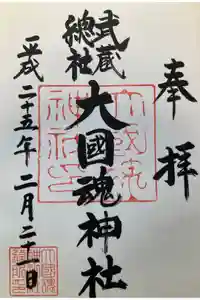 奉拝
武蔵
總社
大國魂神社
平成二十五年二月二十一日